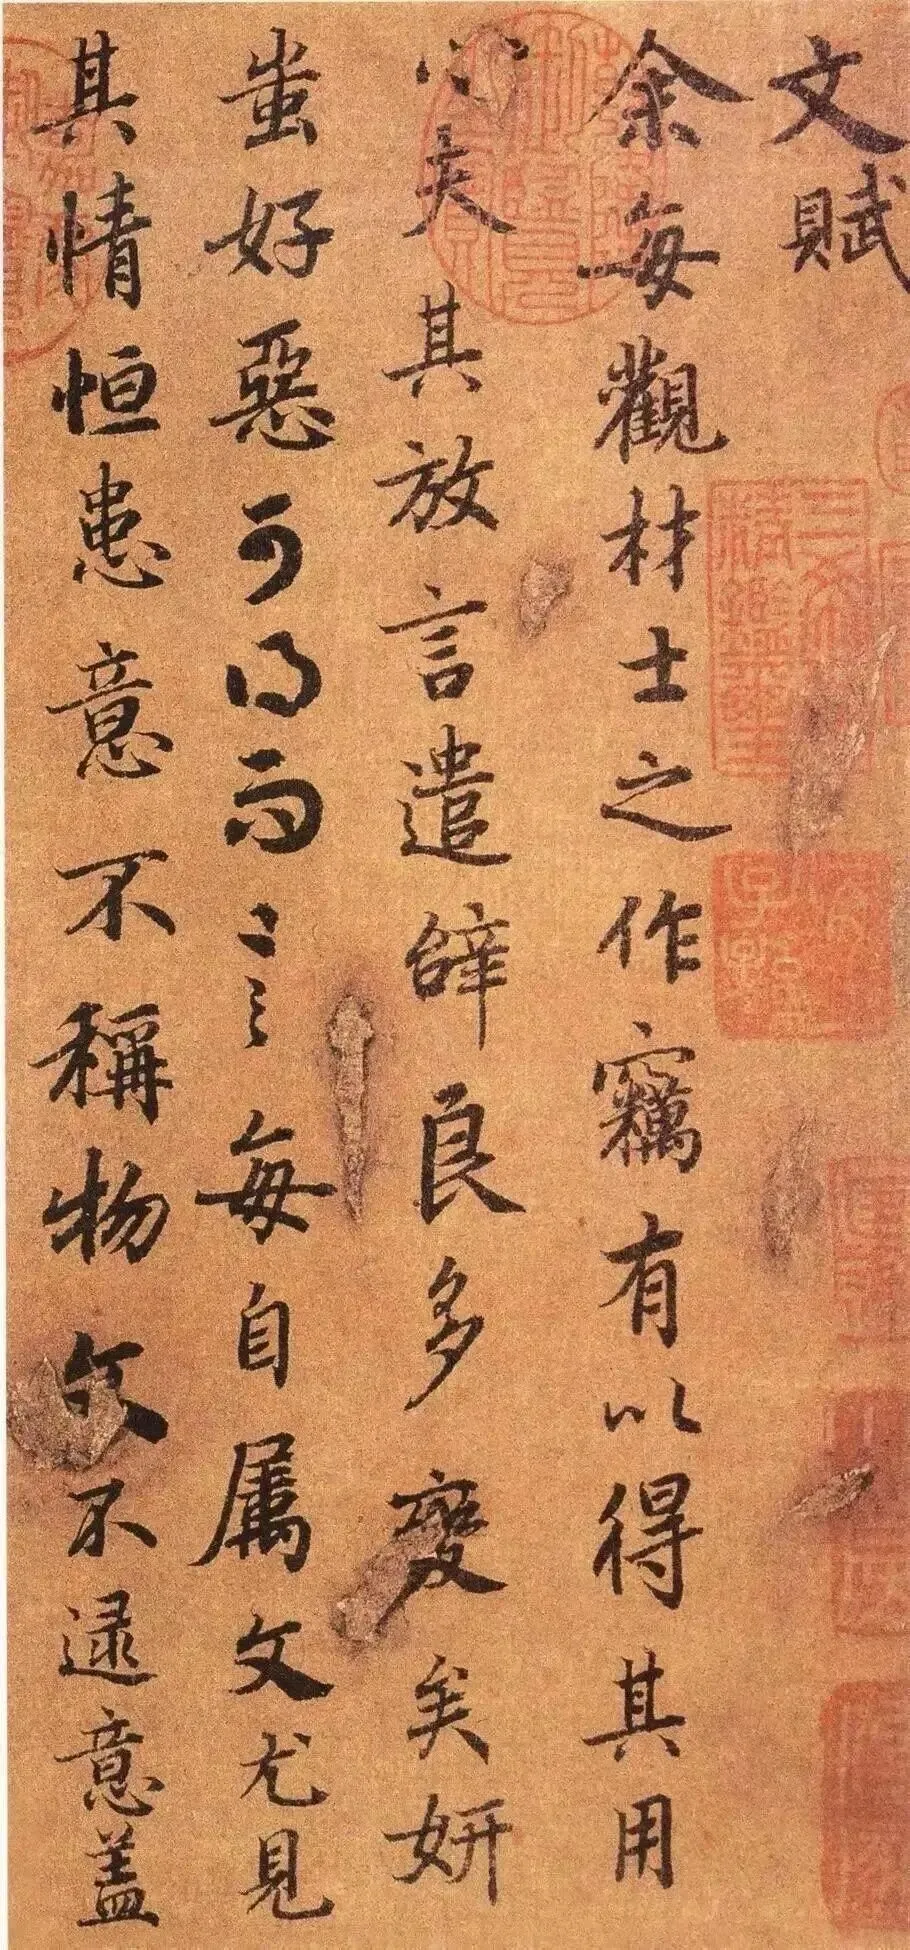 文賦
余每觀材士之作竊有以得其用
心夫其放言遣辭良多變矣妍
蚩好惡可得而言每自属文尤見
其情恒患意不稱物文不逮意盖
三希堂精鑑璽
宜子孫